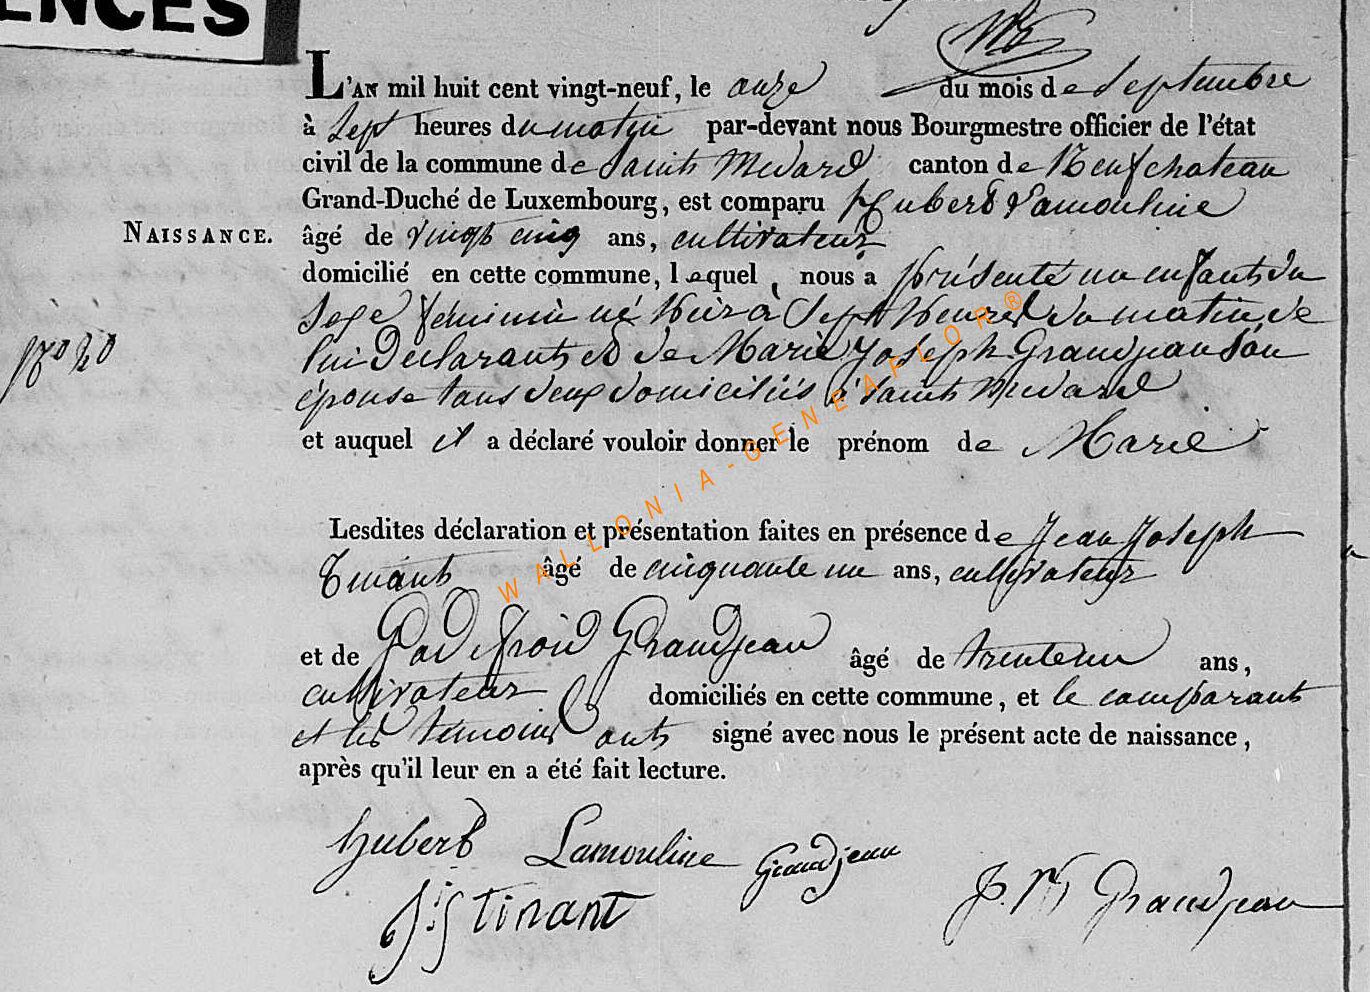 ENCES
L'AN mil huit cent vingt-neuf, le onze du mois de Septembre
à Sept heures du matin par-devant nous Bourgmestre officier de l'état
civil de la commune de Saint Medard canton de Neufchateau
Grand-Duché de Luxembourg, est comparu Hubert Lamouline
NAISSANCE. âgé de vingt cinq ans, cultivateur
domicilié en cette commune, lequel, nous a présenté un enfant du
Sexe feminin né hier à Sept heures du matin de
N° 20
lui Declarant et de Marie Joseph Grandjean Son
épouse tous deux domiciliés à Saint Medard
et auquel il a déclaré vouloir donner le prénom de Marie
WALLONIA-GENEAFLOR®
Lesdites déclaration et présentation faites en présence de Jean Joseph
Tinant âgé de cinquante un ans, cultivateur
et de Godefroid Grandjean âgé de trente un ans,
cultivateur domiciliés en cette commune, et le comparant
et les temoins onts signé avec nous le présent acte de naissance,
après qu'il leur en a été fait lecture.
hubert Lamouline Grandjean
J:J Tinant
Grandjean